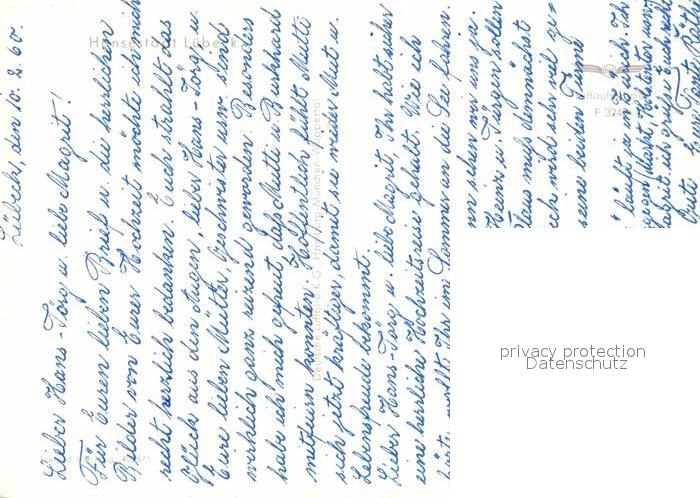 Lübeck, den 10.2.60.
Lieber Hans-Jörg u. liebe Magrit!
Für Euren lieben Brief u. die herrlichen
Bilder von Eurer Hochzeit möchte ich mich
recht herzlich bedanken. Euch strahlt das
Glück aus den Augen, lieber Hans-Jörg u.
Eure lieben Mütter, Geschwister usw. sind
wirklich ganz reizend geworden. Besonders
habe ich mich gefreut, daß Mutti u. Burkhard
mitfeiern konnten. Hoffentlich fühlt Mutti
sich jetzt kräftiger, damit sie wieder Mut u.
Lebensfreude bekommt.
Lieber Hans-Jörg u. liebe Magrit, Ihr habt sicher
eine herrliche Hochzeitsreise gehabt. Wie ich
hörte, wollt Ihr im Sommer an die See fahren.
nn sehen wir uns ja.
Heinz u. Jürgen sollen
Klaus muß demnächst
och wird sehr viel ge-
seine beiden Jung
läuft ja noch. Ich
gegen
abrit. ich grüße Euch recht
Hansestadt Lübeck
Deutsche Luftbild K.G. Hamburg-München-Wuppertal
Luftaufnahme
F 324
privacy protection
Datenschutz